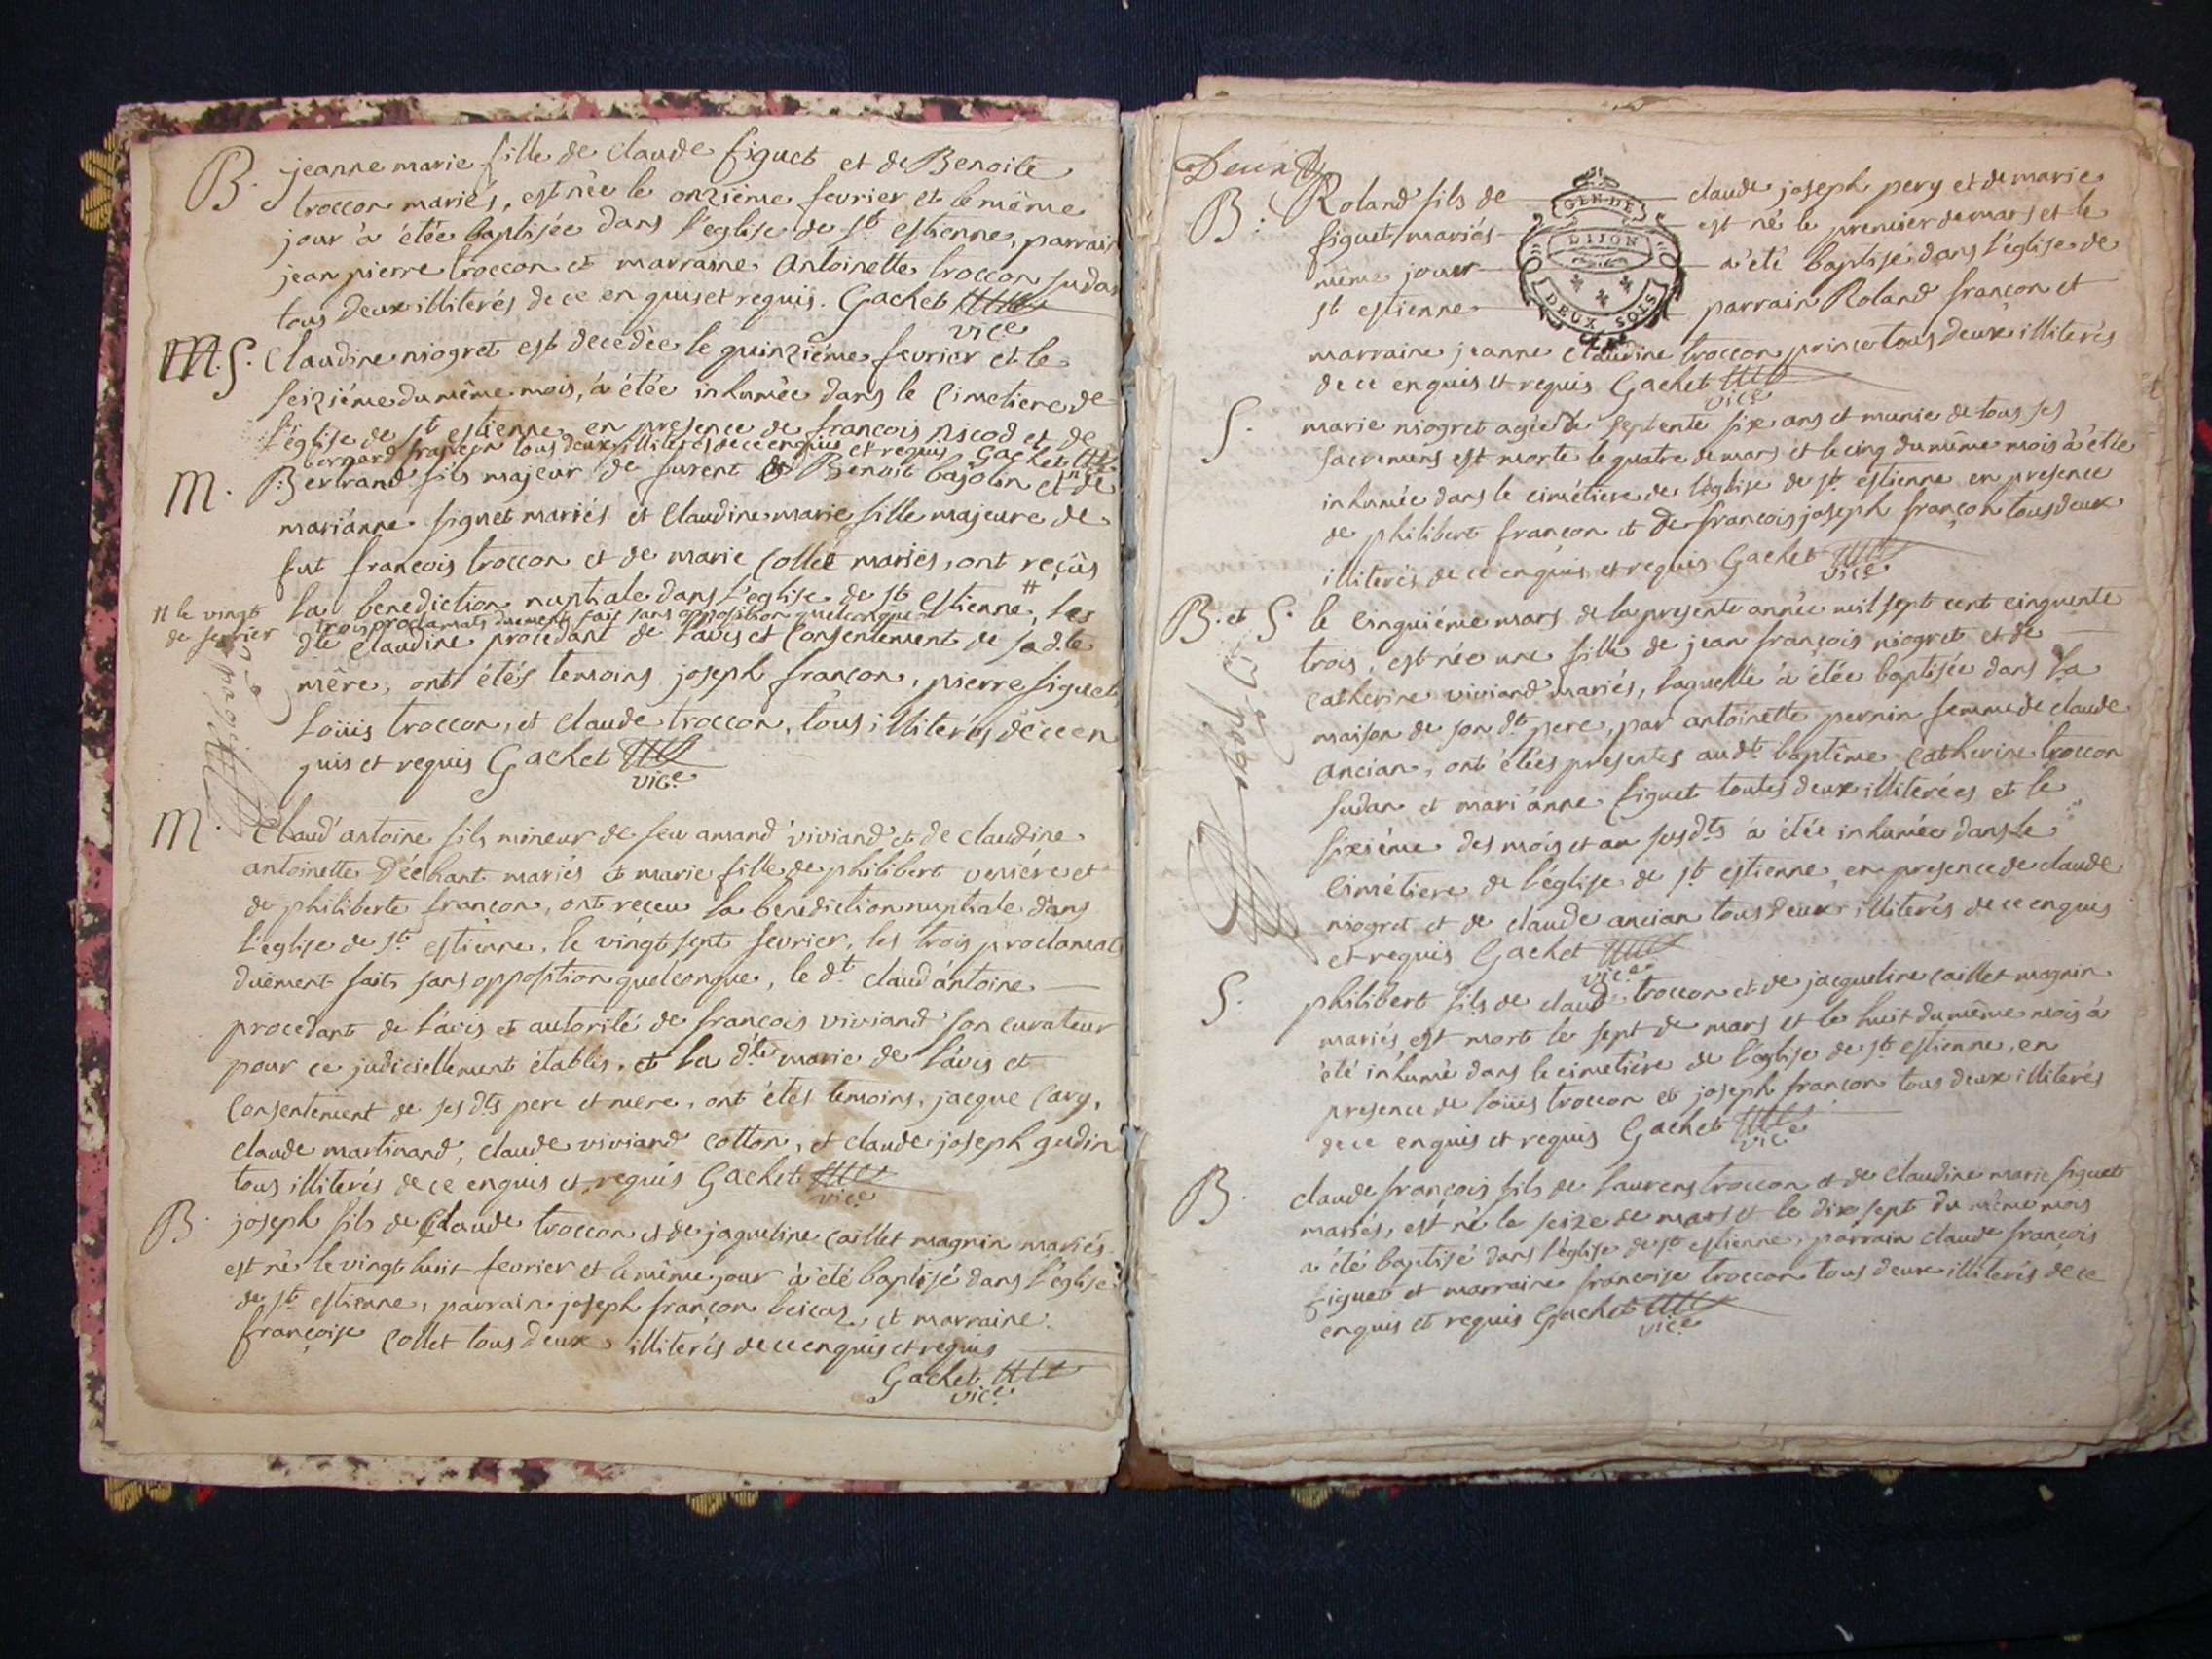 B. jeanne marie fille de claude figuet et de Benoite
troccon mariés, est née le onziéme fevrier et le même
jour à étée baptisée dans l'église de st. estienne, parrain
jean pierre troccon et marraine Antoinette troccon sudan
tous deux illiterés de ce enquis et requis. Gachet
vice
S. Claudine niogret est decedée le quinziéme fevrier et le
seiziéme du même mois, à étée inhumée dans le Cimetiere de
l'église de st estienne en presence de francois Nicod et de
bernard tous deux illiterés de ce enquis et requis Gachet
M. Bertrand fils majeur de furent Benoit bajolin et de
mariánne figuet mariés et Claudine marie fille majeure de
fut francois troccon et de marie Collet mariés, ont reçûs
# le vingt
de fevrier
la benediction nuptiale dans l'église de st. estienne #, les
trois proclamats duement fait sans opposition quelconque
dte Claudine procedant de l'avis et Consentement de sa dte
mêre, ont étés temoins joseph françon, pierre figuet
Loüis troccon, et Claude troccon, tous illiterés de ce en
quis et requis Gachet
vice
M. Claud'antoine fils mineur de feu amand viviand et de claudine
antoinette Déchant mariés et marie fille de philibert veniére et
de philiberte françon, ont receu la benediction nuptiale dans
l'église de st. estienne, le vingt sept fevrier, les trois proclamats
duëment faits sans opposition quelconque, le dt. claud'antoine
procedant de l'avis et autorité de francois viviand son curateur
pour ce judiciellement établis, et la dte marie de l'avis et
Consentement de ses dts pere et mere, ont étés temoins, jacque Cary,
claude martinand, claude viviand cotton, et claude joseph gudin
tous illiterés de ce enquis et requis Gachet
vice
B. joseph fils de Claude troccon et de jaqueline caillet magnin mariés
est né le vingt huit fevrier et le même jour à été baptisé dans l'église
de st. estienne, parrain joseph françon beicaz, et marraine
françoise Collet tous deux illiterés de ce enquis et requis
Gachet
vice
Deux
GEN DE
DIJON
DEUX SOLS
B. Roland fils de claude joseph pery et de marie
figuet mariés est né le premier de mars et le
même jour a été baptisé dans l'église de
st estienne parrain Roland françon et
marraine jeanne Claudine troccon prince tous deux illiterés
de ce enquis et requis Gachet
vice
S. marie niogret agée de septente six ans et munie de tous ses
sacremens est morte le quatre de mars et le cinq du même mois à étée
inhumée dans le cimétiere de l'église de st. estienne en presence
de philibert françon et de francois joseph françon tous deux
illiterés de ce enquis et requis Gachet
vice
B. et S. le Cinquiéme mars de la presente année mil sept cent cinquente
trois, est née une fille de jean françois niogret et de
Catherine viviand mariés, laquelle à étée baptisée dans la
maison de son dt pere, par antoinette pernin femme de claude
Ancian, ont étées presentes au dt. baptême Catherine troccon
sudan et mari'anne figuet toutes deux illiterées et le
sixiéme des mois et an susdts à étée inhumée dans le
Cimétiere de l'église de st estienne, en presence de claude
niogret et de claude ancian tous deux illiterés de ce enquis
et requis Gachet
vice
S. philibert fils de claude troccon et de jacqueline caillet magnin
mariés, est mort le sept de mars et le huit du même mois à
été inhumé dans le cimetiére de l'église de st. estienne, en
presence de Loüis troccon et joseph françon tous deux illiterés
de ce enquis et requis Gachet
vice
B. claude françois fils de Laurens troccon et de claudine marie figuet
mariés, est né le seize de mars et le dix sept du même mois
a été baptisé dans l'église de st estienne, parrain claude françois
figuet et marraine françoise troccon tous deux illiterés de ce
enquis et requis Gachet
vice